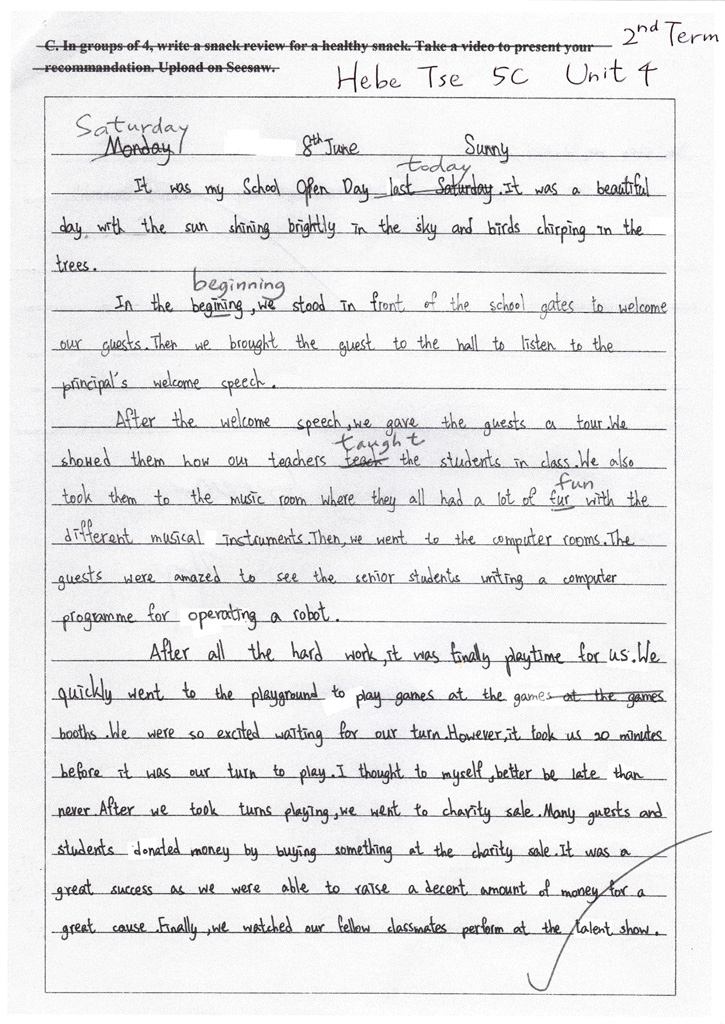 2nd Term
C. In groups of 4, write a snack review for a healthy snack. Take a video to present your
recommandation. Upload on Seesaw.
Hebe Tse 5C Unit 4
Saturday
Monday 8th June Sunny
today
It was my School Open Day last Saturday. It was a beautiful
day with the sun shining brightly in the sky and birds chirping in the
trees.
beginning
In the begining, we stood in front of the school gates to welcome
our guests. Then we brought the guest to the hall to listen to the
principal's welcome speech.
After the welcome speech, we gave the guests a tour. We
taught
showed them how our teachers teach the students in class. We also
fun
took them to the music room where they all had a lot of fur with the
different musical instruments. Then, we went to the computer rooms. The
guests were amazed to see the senior students writing a computer
programme for operating a robot.
After all the hard work, it was finally playtime for us. We
quickly went to the playground to play games at the games at the games
booths. We were so excited waiting for our turn. However, it took us 20 minutes
before it was our turn to play. I thought to myself, better be late than
never. After we took turns playing, we went to charity sale. Many guests and
students donated money by buying something at the charity sale. It was a
great success as we were able to raise a decent amount of money for a
great cause. Finally, we watched our fellow classmates perform at the talent show.